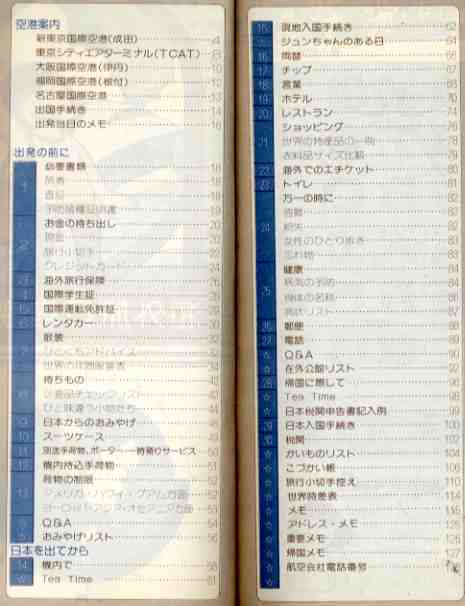 空港案内
新東京国際空港(成田) 4
東京シティエアターミナル(TCAT) 8
大阪国際空港(伊丹) 10
福岡国際空港(板付) 12
名古屋国際空港 13
出国手続き 14
出発当日のメモ 16
出発の前に
必要書類 18
1 旅券 18
査証 18
予防接種証明書 19
お金の持ち出し 20
2 現金 20
旅行小切手 22
クレジットカード 24
3 海外旅行保険 26
4 国際学生証 28
5 国際運転免許証 29
6 レンタカー 30
服装 32
7 ひとくちアドバイス 32
世界の月間服装表 34
持ちもの 40
8 必需品チェックリスト
ひと味違う小物たち 44
9 日本からのおみやげ 48
10 スーツケース 49
11 別送手荷物、ポーター、一時預りサービス 50
12 機内持込手荷物 51
荷物の制限 52
13 アメリカ・ハワイ・グアム方面 52
ヨーロッパ・アジア・オセアニア方面 53
☆ Q&A 54
☆ おみやげリスト 56
日本を出てから
14 機内で 58
☆ Tea Time 61
15 現地入国手続き 62
☆ ジュンちゃんのある日 64
16 両替 66
17 チップ 67
18 言葉 68
19 ホテル 70
20 レストラン 74
ショッピング 76
21 世界の特産品の一例 78
衣料品サイズ比較 79
22 海外でのエチケット 80
23 トイレ 81
万一の時に 82
盗難 82
24 紛失 82
女性のひとり歩き 83
忘れ物 83
健康 84
25 病気の予防 84
身体の名称 86
病状リスト 87
26 郵便 88
27 電話 89
☆ Q&A 90
☆ 在外公館リスト 92
28 帰国に際して 96
☆ Tea Time 98
☆ 日本税関申告書記入例 99
29 日本入国手続き 100
30 税関 102
☆ かいものリスト 104
☆ こづかい帳 106
☆ 旅行小切手控え 110
☆ 世界時差表 114
☆ メモ 116
☆ アドレス・メモ 126
☆ 重要メモ 126
☆ 帰国メモ 127
☆ 航空会社電話番号